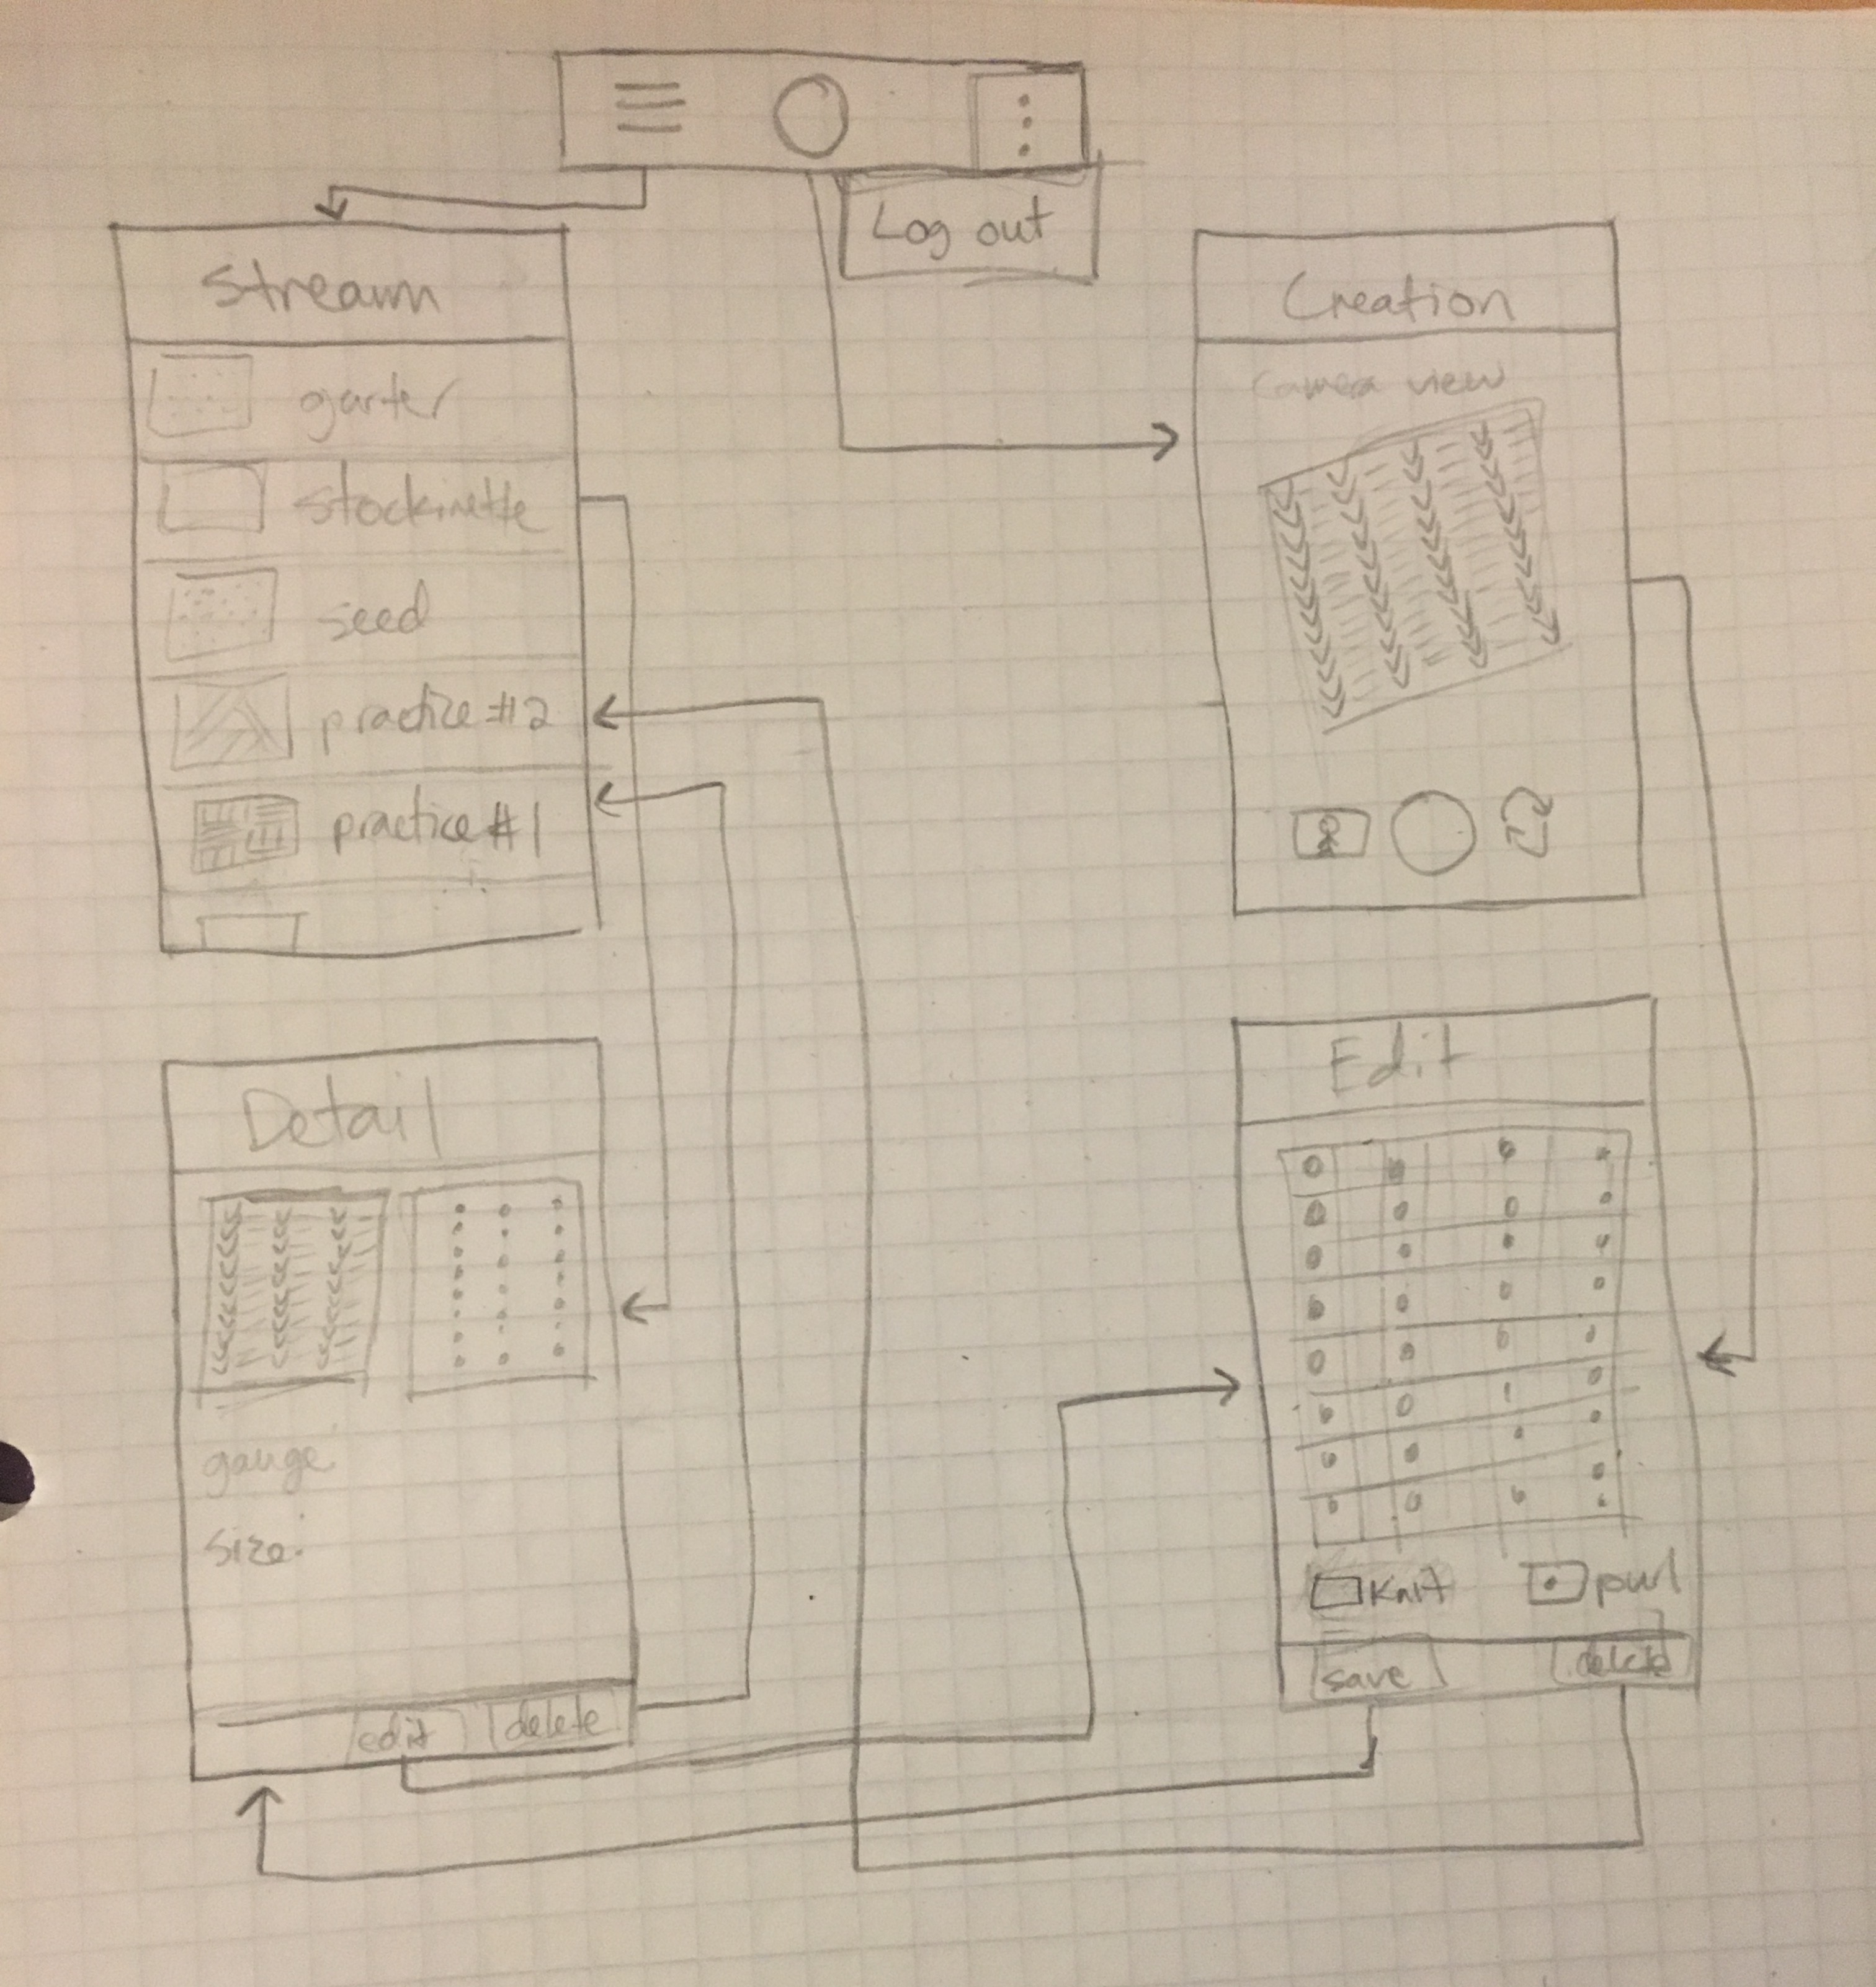 Log out
Stream
garter
stockinette
seed
practice #2
practice #1
Creation
Camera view
Detail
gauge:
size:
edit
delete
Edit
Knit
purl
save
delete